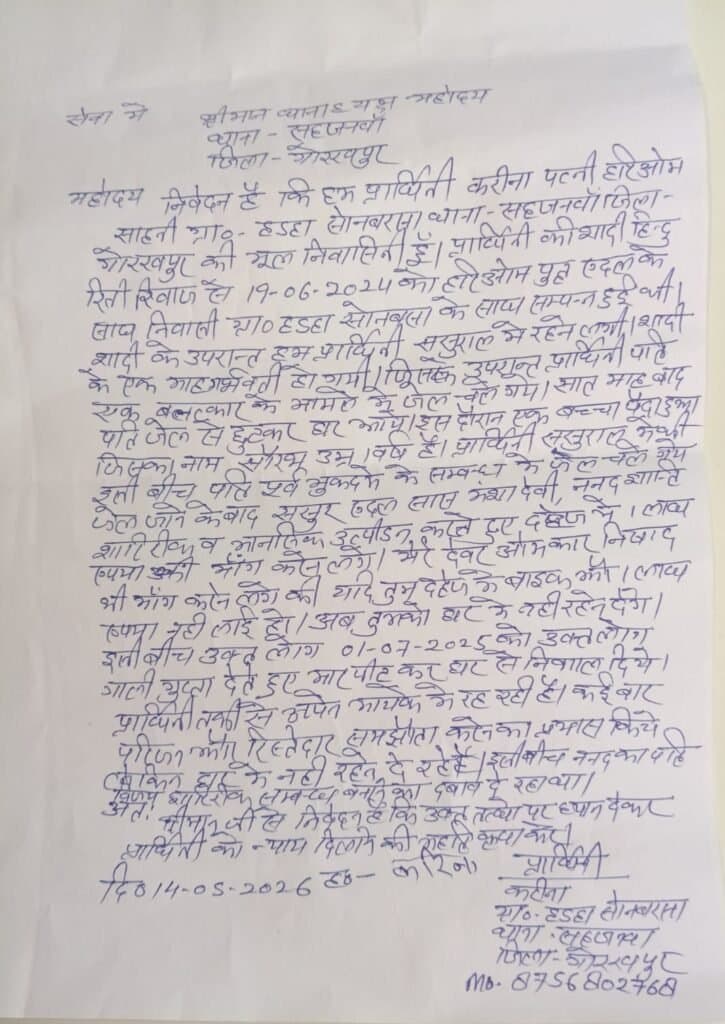 सेवा में श्रीमान थानाध्यक्ष महोदय
थाना - सहजनवाँ
जिला - गोरखपुर
महोदय निवेदन है कि हम प्रार्थिनी करीना पत्नी हरिओम
साहनी ग्रा०- हडहा सोनबरसा थाना - सहजनवाँ जिला-
गोरखपुर की मूल निवासिनी हूँ। प्रार्थिनी की शादी हिन्दु
रिती रिवाज से 19-06-2024 को हरिओम पुत्र रूदल के
साथ निवासी ग्रा० हडहा सोनबरसा के साथ सम्पन्न हुई थी।
शादी के उपरान्त हम प्रार्थिनी ससुराल में रहने लगी। शादी
के एक माह गर्भवती हो गयी। जिसके उपरान्त प्रार्थिनी पति
एक बलात्कार के मामले में जेल चले गये। सात माह बाद
पति जेल से छुटकर घर आये। इस दौरान एक बच्चा पैदा हुआ
जिसका नाम सौरभ उम्र 1 वर्ष है। प्रार्थिनी ससुराल में थी
इसी बीच पति पूर्व मुकदमे के सम्बन्ध के जेल चले गये
जेल जाने के बाद ससुर रूदल सास मंशा देवी, ननद शान्ति
शारिरीक व मानसिक उत्पीडन करते हुए दहेज में 1 लाख
रूपया की माँग करने लगे। मेरे देवर ओमकार निषाद
भी माँग करने लगे की यदि तुम दहेज में बाइक और 1 लाख
रूपया नही लाई हो। अब तुमको घर में नही रहने देंगे।
इसी बीच उक्त लोग 01-07-2025 को उक्त लोग
गाली गुप्ता देते हुए मार पीट कर घर से निकाल दिये।
प्रार्थिनी तभी से अपने मायके में रह रही है। कई बार
परिजन और रिस्तेदार समझौता करने का प्रयास किये
लेकिन घर में नही रहने दे रहे है। इसी बीच ननद का पति
शारिरीक सम्बन्ध बनाने का दबाव दे रहा था।
अतः श्रीमान जी से निवेदन है कि उक्त तथ्यो पर ध्यान देकर
प्रार्थिनी को न्याय दिलाने की कृपा करे।
दि० 14-05-2026 ह०- करिना प्रार्थिनी
करीना
ग्रा०- हडहा सोनबरसा
थाना - सहजनवा
जिला - गोरखपुर
Mo. 8756802768